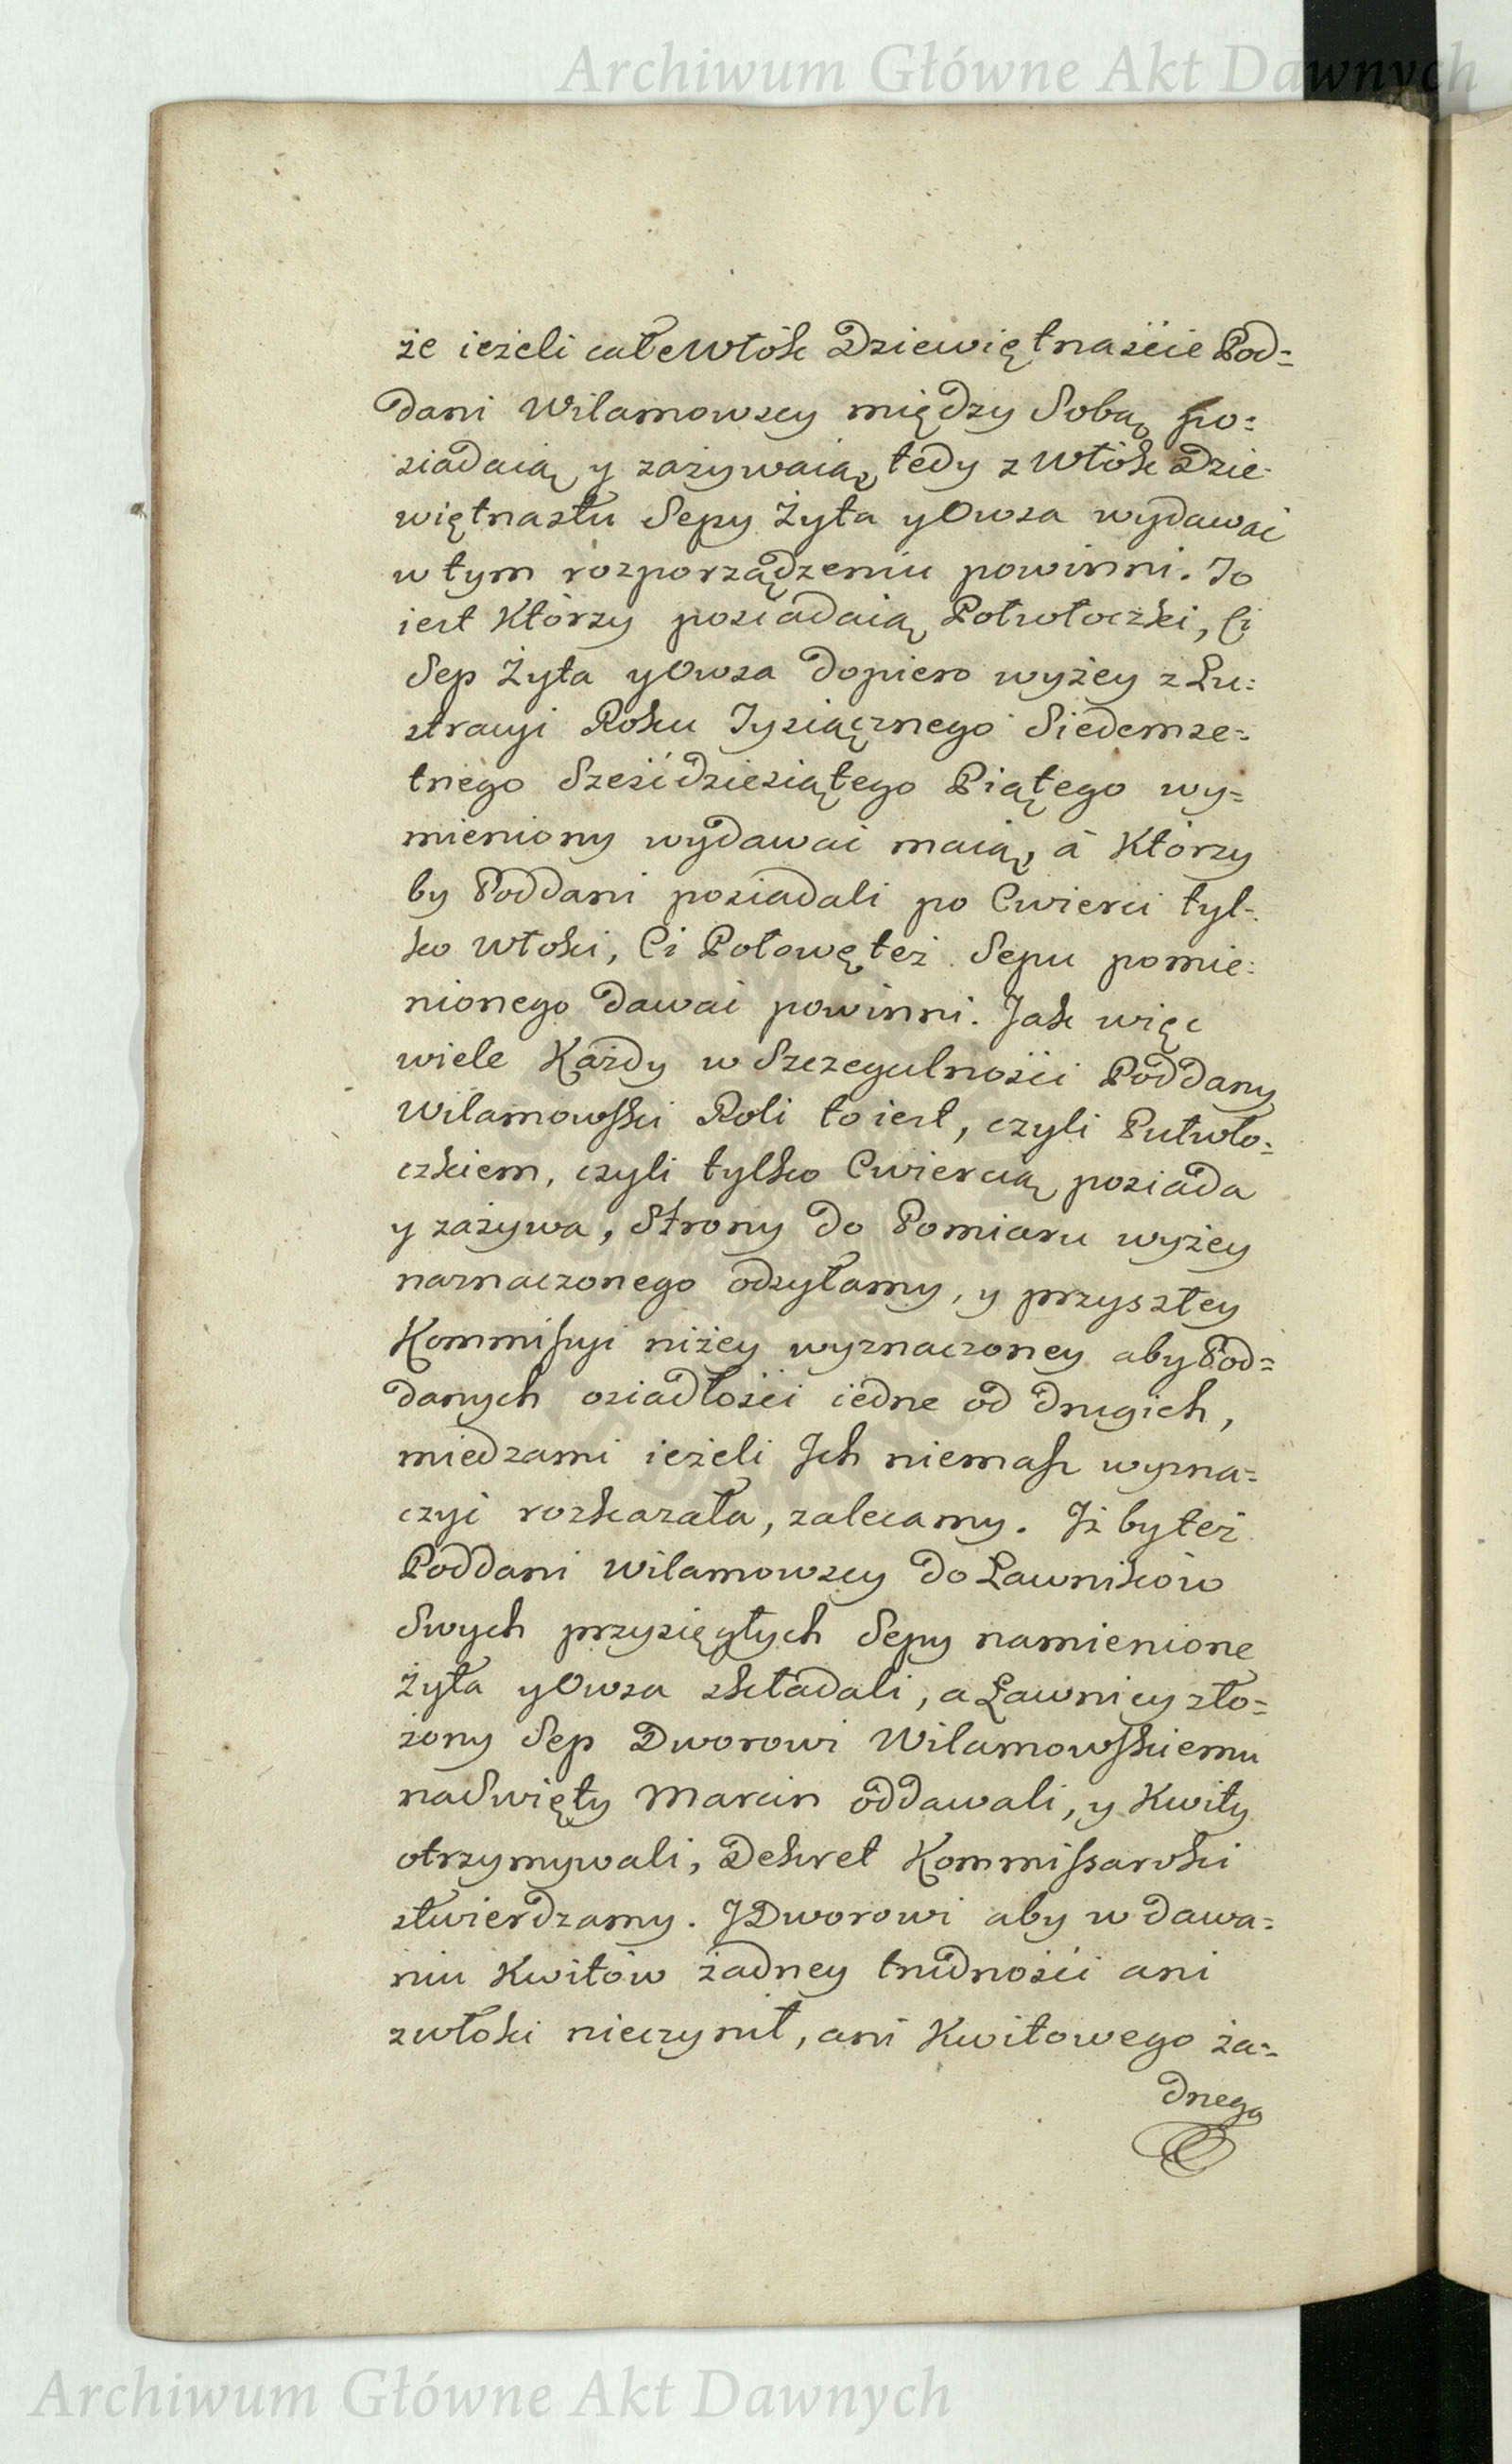 Archiwum Główne Akt Dawnych
że ieżeli całe Włók Dziewiętnaście Pod=
dani Wilamowscy między Sobą po=
siadaią y zażywaią, tedy z Włók Dzie=
więtnastu Sepy Żyta y Owsa wydawać
w tym rozporządzeniu powinni. To
iest Którzy posiadaią Półwłoczki, Ci
Sep Żyta y Owsa dopiero wyżey z Lu=
stracyi Roku Tysiącznego Siedemse=
tnego Sześćdziesiątego Piątego wy=
mieniony wydawać maią, à Którzy
by Poddani posiadali po Cwierci tyl=
ko Włoki, Ci Połowę też Sepu pomie=
nionego dawać powinni. Jak więc
wiele Każdy w Szczegulności Poddany
Wilamowski Roli to iest, czyli Pułwło=
czkiem, czyli tylko Cwiercią posiada
y zażywa, Strony do Pomiaru wyżey
naznaczonego odsyłamy, y przyszłey
Kommissyi niżey wyznaczoney aby Pod=
danych osiadłości iedne od drugich,
miedzami ieżeli Ich niemasz wyzna=
czyć rozkazała, zalecamy. Iż by też
Poddani Wilamowscy do Ławników
Swych przysięgłych Sepy namienione
Żyta y Owsa składali, a Ławnicy zło=
żony Sep Dworowi Wilamowskiemu
na Swięty Marcin oddawali, y Kwity
otrzymywali, Dekret Kommissarski
stwierdzamy. I Dworowi aby w dawa=
niu Kwitów żadney trudności ani
zwłoki nieczynił, ani Kwitowego ża=
dnego
Archiwum Główne Akt Dawnych